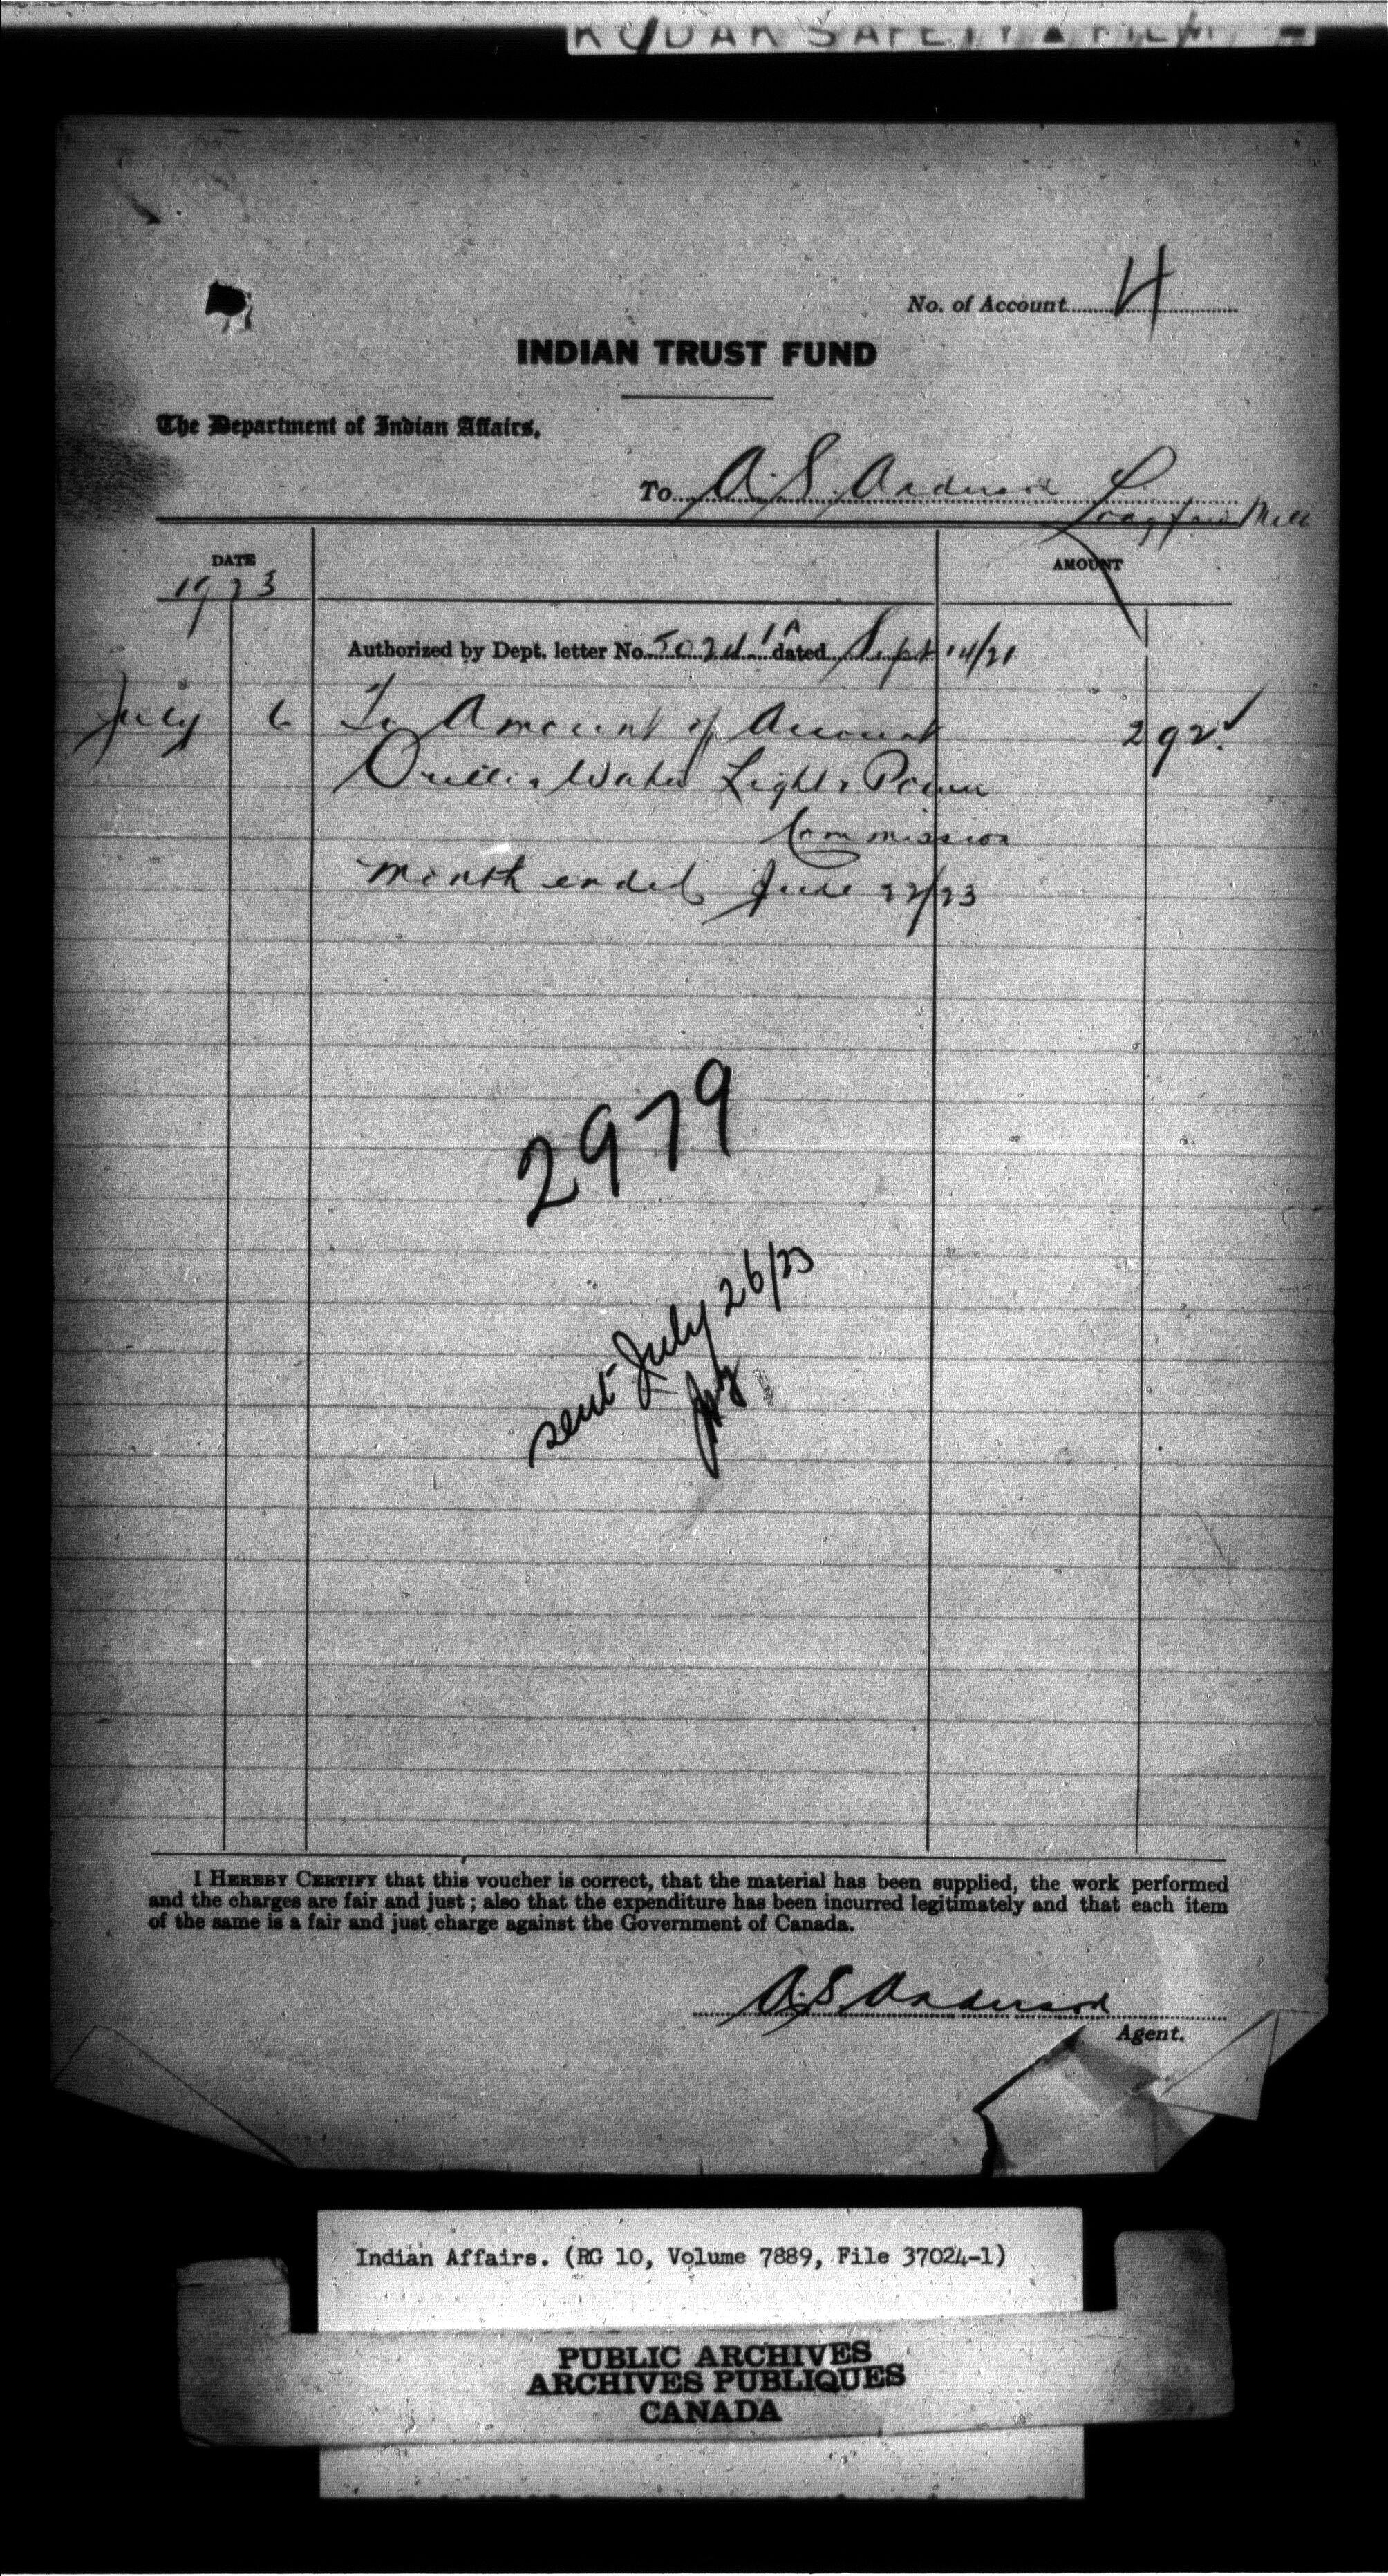 KODAK SAFETY ▲ FILM
No. of Account 4
INDIAN TRUST FUND
The Department of Indian Affairs,
To A. S. Anderson Longford Mill
DATE AMOUNT
1923
Authorized by Dept. letter No. dated Sept 14/21
July 6 To Amount of Account 2 92
Orillia Water Light & Power
Commission
month ended June 22/23
2979
sent July 26/23
I HEREBY CERTIFY that this voucher is correct, that the material has been supplied, the work performed
and the charges are fair and just; also that the expenditure has been incurred legitimately and that each item
of the same is a fair and just charge against the Government of Canada.
A. S. Anderson
Agent.
Indian Affairs. (RG 10, Volume 7889, File 37024-1)
PUBLIC ARCHIVES
ARCHIVES PUBLIQUES
CANADA